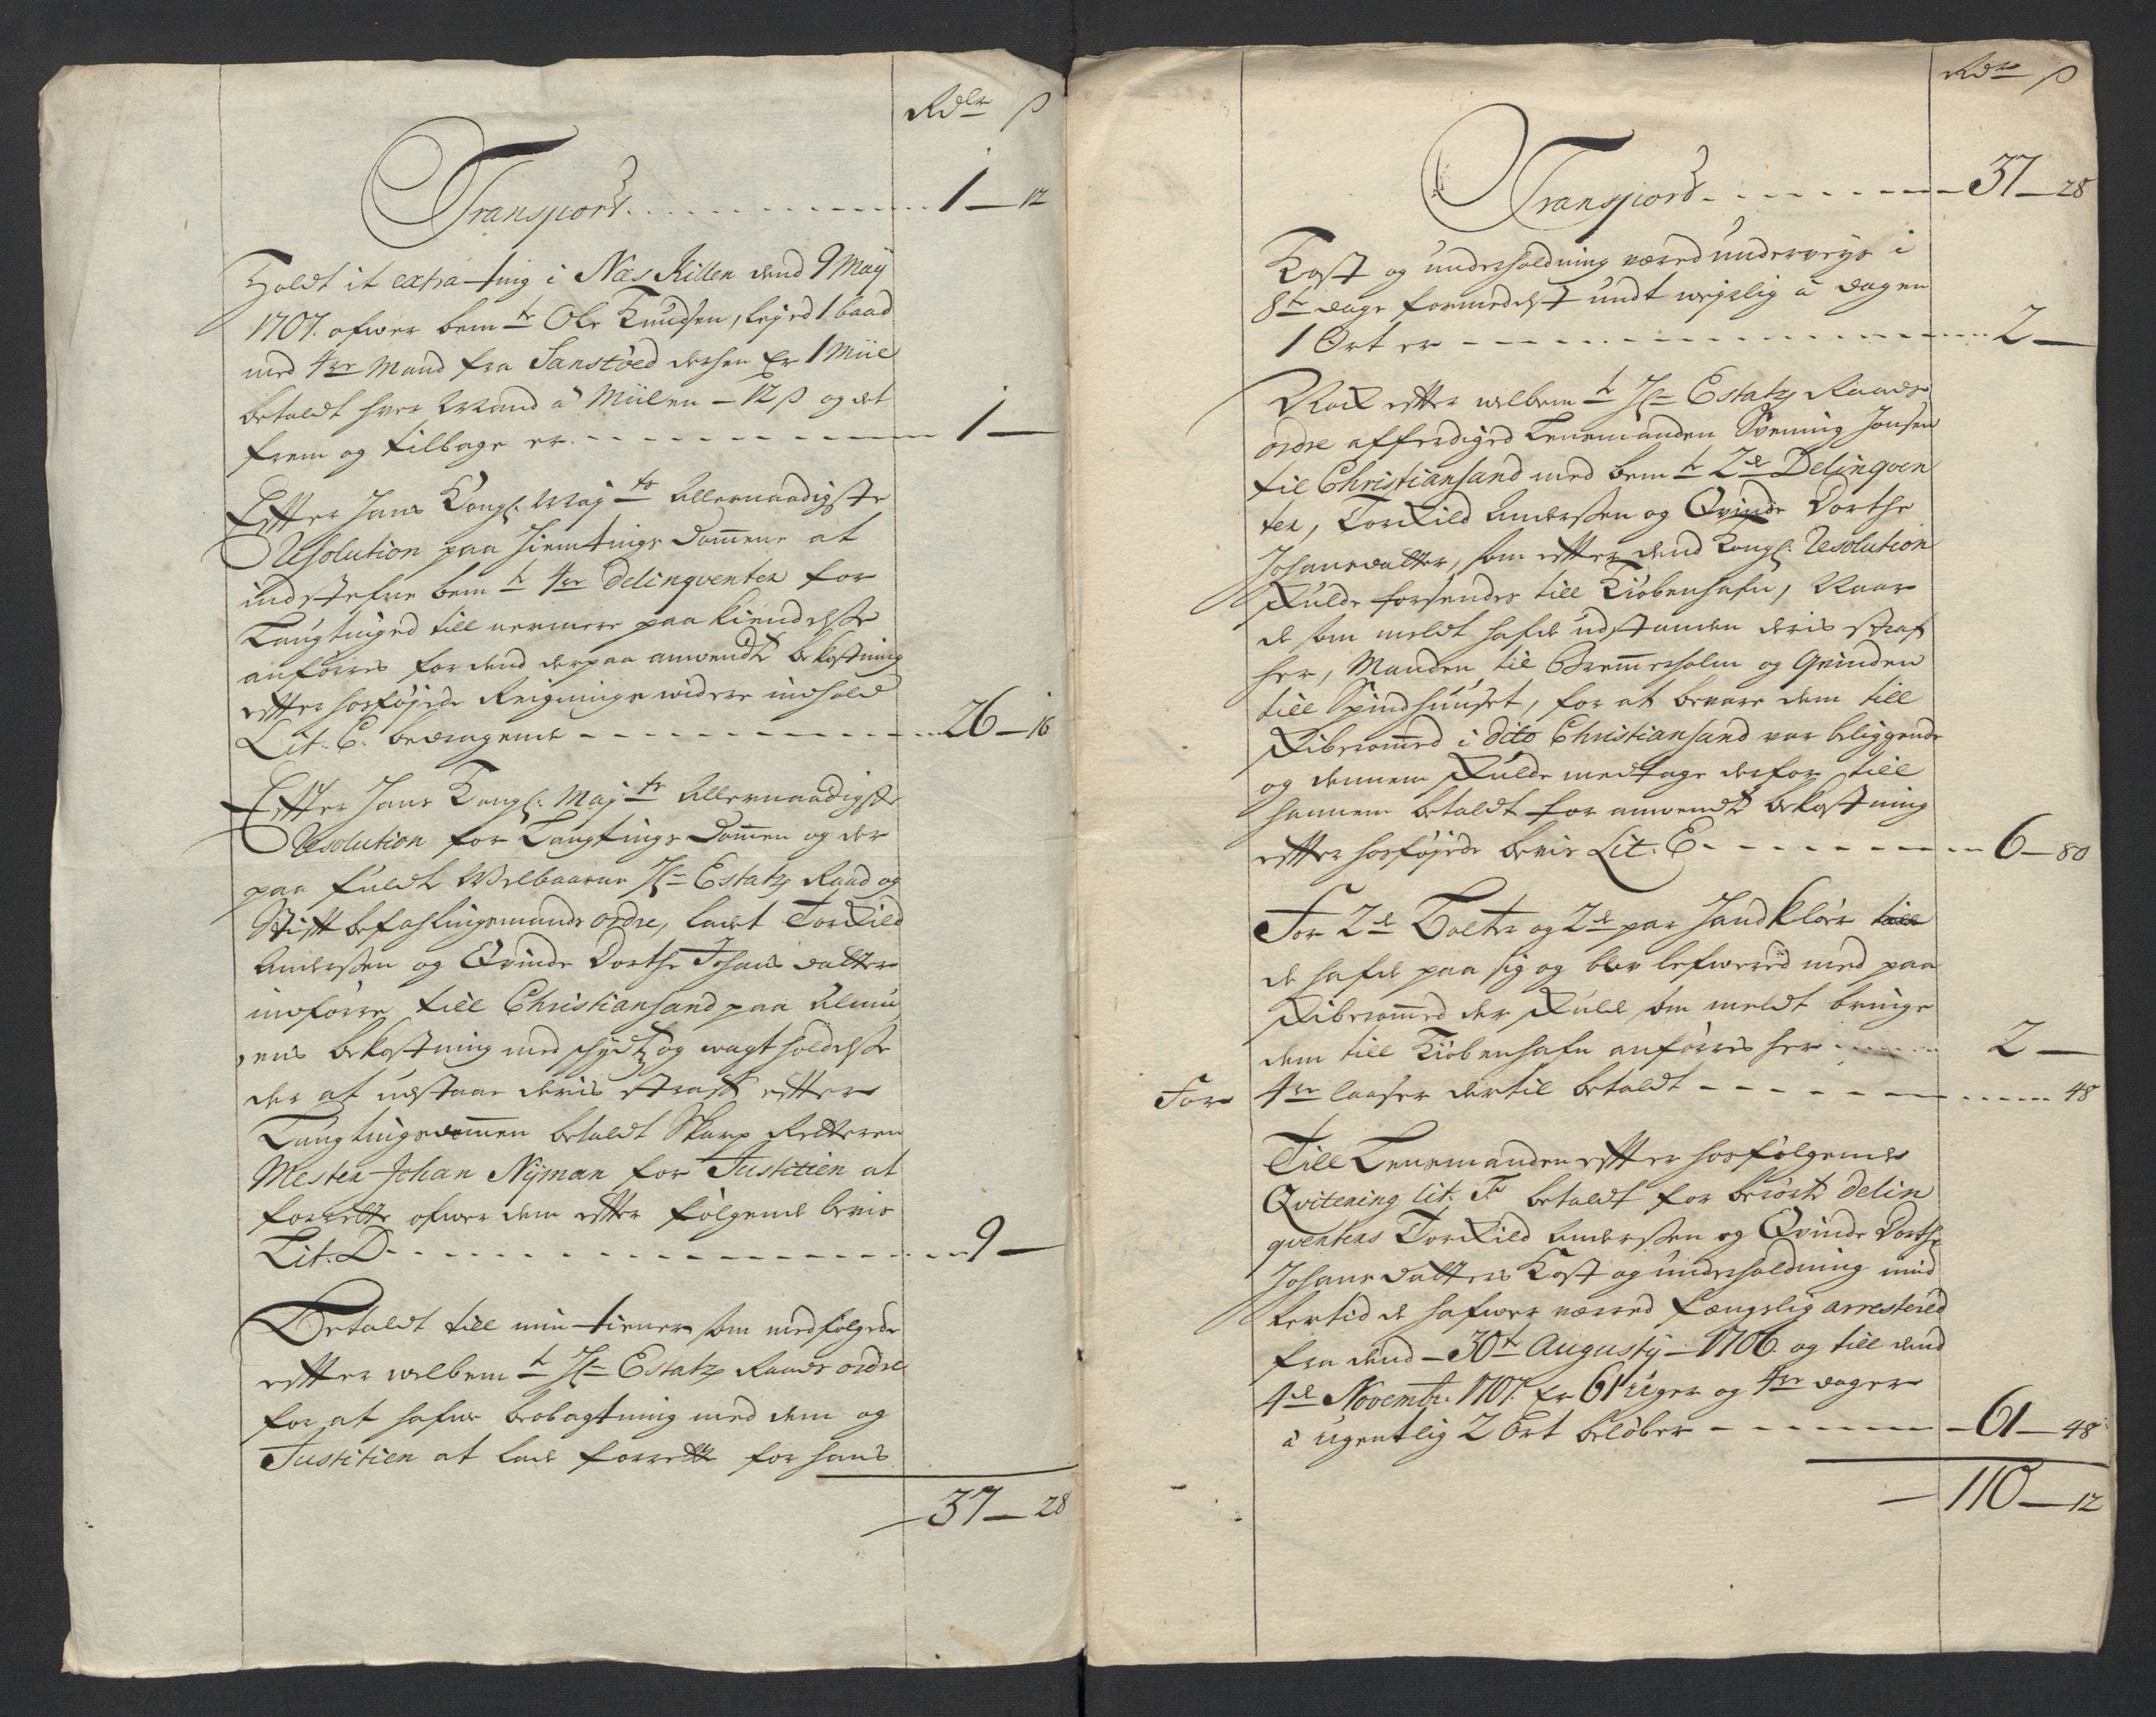 Rdlr ß
Transport 1 – 12
Holdt it extra ting i Næs Killen dend 9 Maij
1707. ofwer bemte Ole Knudsen, leyed 1 baad
med 4re Mand fra Sanstøed dersen Er 1 Miil
betaldt hver Mand â Miilen – 12 ß og det
frem og tilbage er 1 –
Efter Hans Kongl: Mayts Allernaadigste
Resolution paa Hiemtings Dommene at
indstefne bemte 4re Delinqventer for
Laugtinged till nermere paa kiendelse
anføres for dend derpaa anwendte bekostning
efter hosføyede Reignings widere indhold
Lit: C. bedragende 26 – 16
Efter Hans Kongl: Mayts Allernaadigste
Resolution for Laugtings Dommen og der
paa fuldt Welbaarne Hr Estatz Raad og
Stiftbefahlingsmands ordre, ladet Torkild
Anderssen og Qvinde Dorthe Johans datter
indføre till Christiansand paa Almu
ens bekostning med schydtz og wagt holdelse
der at udstaae deris straff efter
Laugtingsdommen betaldt Skarp Retteren
Mester Johan Nyman for Justitien at
forrette ofwer dem efter følgende bevis
Lit: D 9 –
Betaldt till min tiener som medfølgede
efter welbemte Hr Estatz Raads ordre
for at hafwe beobagtning med dem og
Justitien at lade forrette for hans
37 – 28
Rdr ß
Transport 37 – 28
Kost og underholdning væred underveys i
8te dage formedelst undt weyrlig â dagen
1 Ort er 2 –
Nock efter welbemte Hr Estatz Raads
ordre afferdiged Lensmanden Svening Jonsen
til Christiansand med bemte 2de Delinqven
ter, Torkild Anderssen og Qvinde Dorthe
Johansdatter, som efter dend Kongl: Resolution
skulde forsendes till Kiøbenhafn, Naar
de som meldt hafde udstanden deris straf
her, Manden til Bremmerholm og Qvinden
till Spindhuuset, for at bevare dem till
Skiberommed i dito Christiansand var beliggende
og dennem skulde medtage derfor till
hannem betaldt for anwendt bekostning
efter hosføyede bevis Lit: E 6 – 80
For 2de Bolter og 2de par Handkløer
de hafde paa sig og blev lefwered med paa
Skiberommed der skulde som meldt bringe
dem till Kiøbenhafn anføres her 2 –
For 4re laaser dertil betaldt 48
Till Lensmanden efter hosfølgende
Qvitering lit: F betaldt for berørte Delin
qventers Torkild Anderssen og Qvinde Dorthe
Johans datters Kost og underholdning mid
lertid de hafwer værred fængslig arrestered
fra dend – 30te Augusty – 1706 og till dend
4de Novembr. 1707. Er 61 Uger og 4re dager
â ugentlig 2 Ort beløber 61 – 48
110 – 12